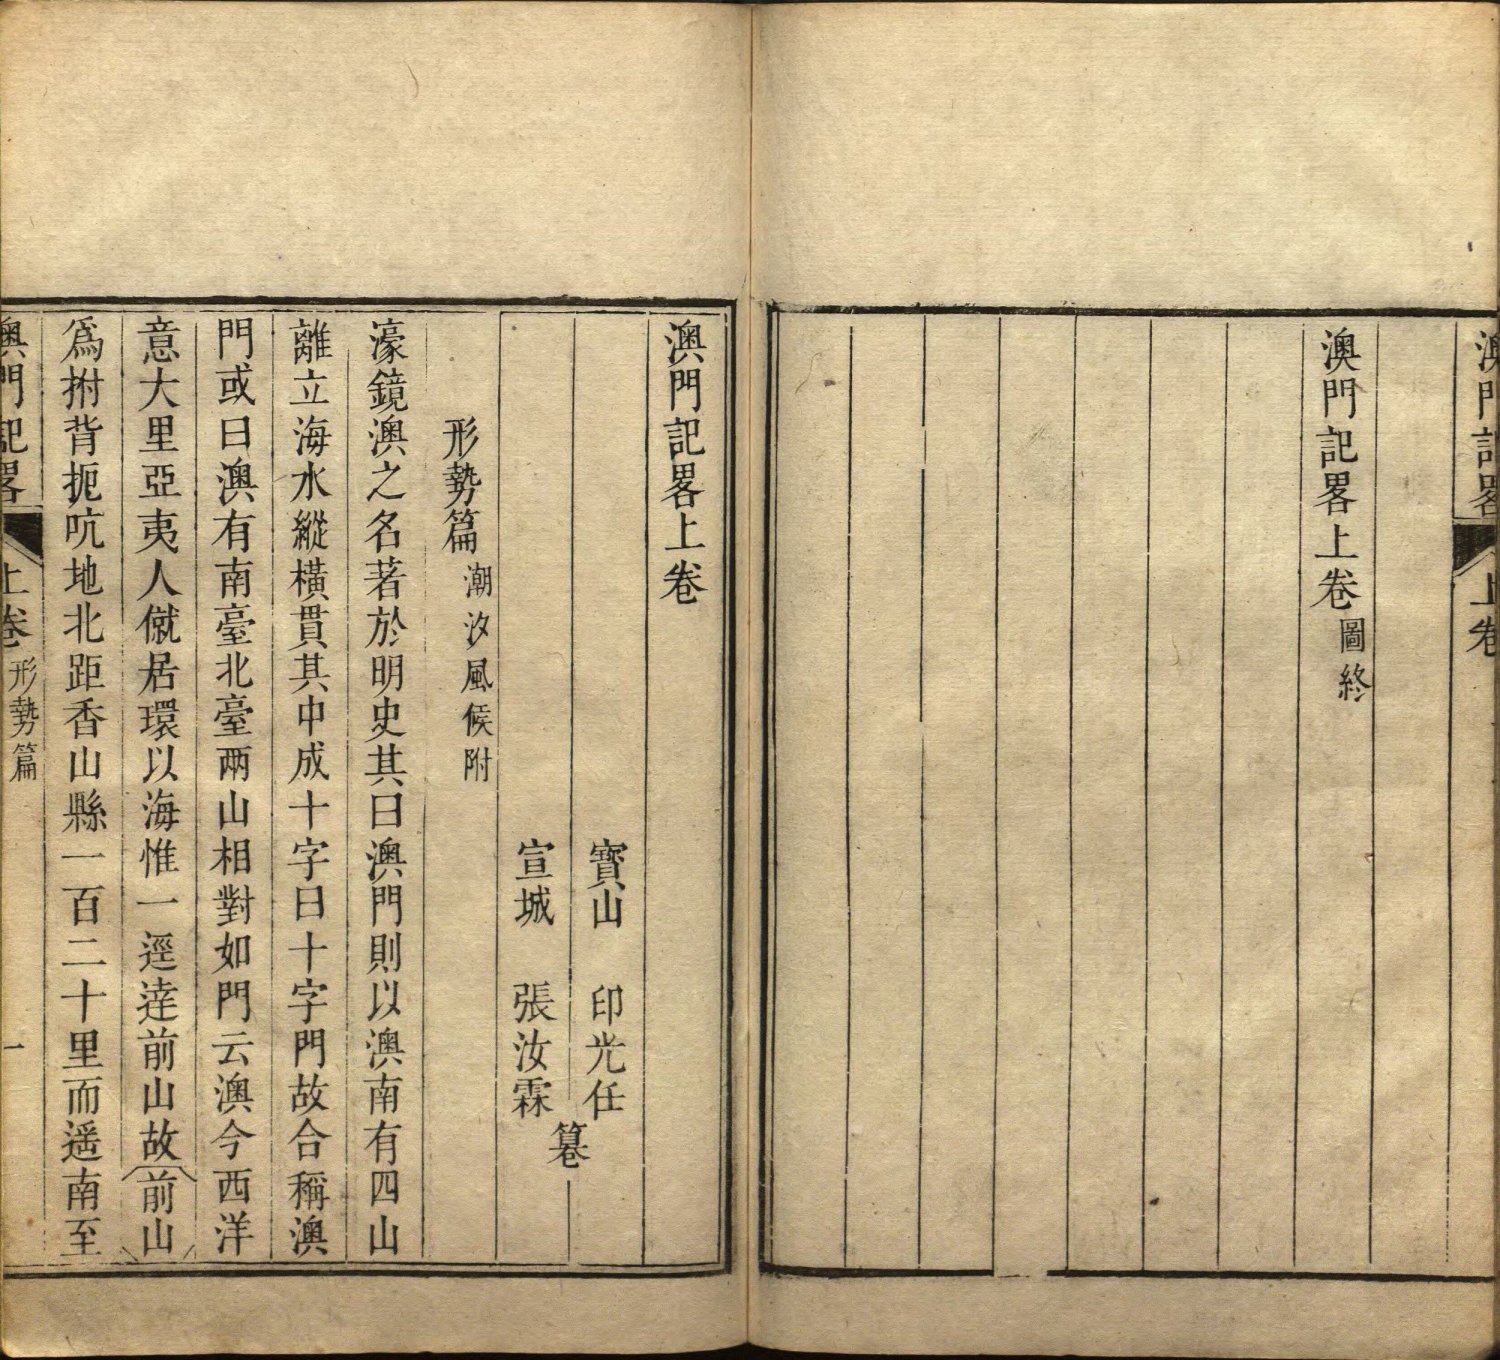 澳門記畧
上卷
澳門記畧上卷圖終
澳門記畧上卷
寶山 印光任
宣城 張汝霖
纂
形勢篇潮汐風候附
濠鏡澳之名著於明史其曰澳門則以澳南有四山
離立海水縱橫貫其中成十字曰十字門故合稱澳
門或曰澳有南臺北臺兩山相對如門云澳今西洋
意大里亞夷人僦居環以海惟一逕達前山故前山
爲拊背扼吭地北距香山縣一百二十里而遥南至
澳門記畧
上卷形勢篇
一